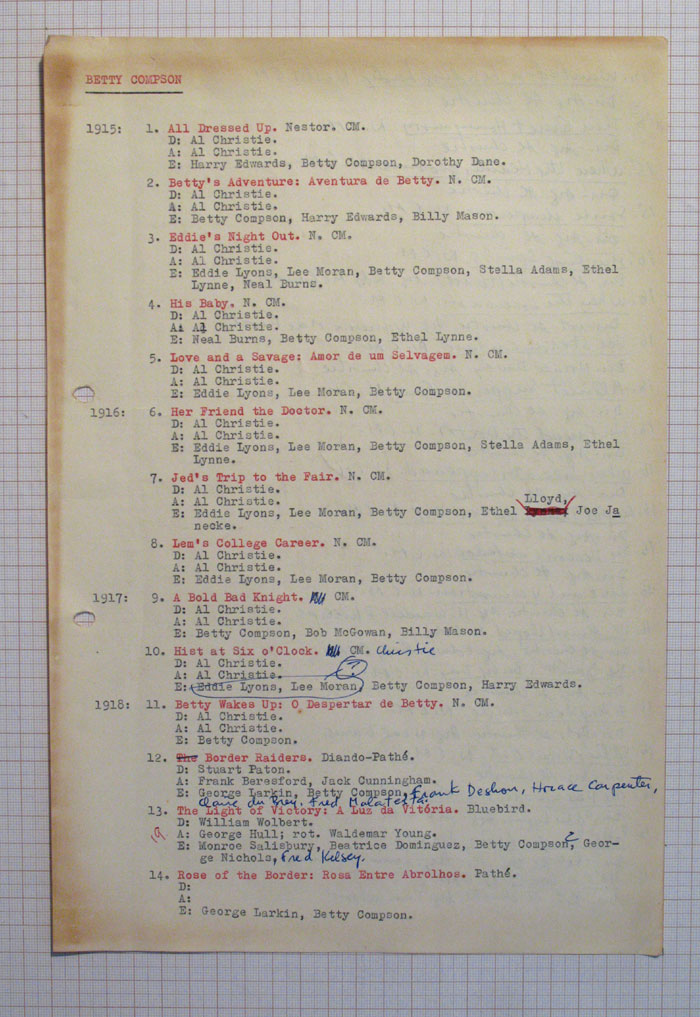 BETTY COMPSON
1915: 1. All Dressed Up. Nestor. CM.
D: Al Christie.
A: Al Christie.
E: Harry Edwards, Betty Compson, Dorothy Dane.
2. Betty's Adventure: Aventura de Betty. N. CM.
D: Al Christie.
A: Al Christie.
E: Betty Compson, Harry Edwards, Billy Mason.
3. Eddie's Night Out. N. CM.
D: Al Christie.
A: Al Christie.
E: Eddie Lyons, Lee Moran, Betty Compson, Stella Adams, Ethel
Lynne, Neal Burns.
4. His Baby. N. CM.
D: Al Christie.
A: Al Christie.
E: Neal Burns, Betty Compson, Ethel Lynne.
5. Love and a Savage: Amor de um Selvagem. N. CM.
D: Al Christie.
A: Al Christie.
E: Eddie Lyons, Lee Moran, Betty Compson.
1916: 6. Her Friend the Doctor. N. CM.
D: Al Christie.
A: Al Christie.
E: Eddie Lyons, Lee Moran, Betty Compson, Stella Adams, Ethel
Lynne.
7. Jed's Trip to the Fair. N. CM.
D: Al Christie.
A: Al Christie.
Lloyd,
E: Eddie Lyons, Lee Moran, Betty Compson, Ethel Joe Ja
necke.
8. Lem's College Career. N. CM.
D: Al Christie.
A: Al Christie.
E: Eddie Lyons, Lee Moran, Betty Compson.
1917: 9. A Bold Bad Knight. CM.
D: Al Christie.
A: Al Christie.
E: Betty Compson, Bob McGowan, Billy Mason.
10. Hist at Six o'Clock. CM. Christie
D: Al Christie.
A: Al Christie. ?
E: Eddie Lyons, Lee Moran, Betty Compson, Harry Edwards.
1918: 11. Betty Wakes Up: O Despertar de Betty. N. CM.
D: Al Christie.
A: Al Christie.
E: Betty Compson.
12. The Border Raiders. Diando-Pathé.
D: Stuart Paton.
A: Frank Beresford, Jack Cunningham.
E: George Larkin, Betty Compson, Frank Deshon, Horace Carpenter,
Claire du Brey. Fred Malatesta.
13. The Light of Victory: A Luz da Vitória. Bluebird.
D: William Wolbert.
A: George Hull; rot. Waldemar Young.
E: Monroe Salisbury, Beatrice Dominguez, Betty Compson, ? Geor-
ge Nichols, Fred Kelsey.
14. Rose of the Border: Rosa Entre Abrolhos. Pathé.
D:
A:
E: George Larkin, Betty Compson.